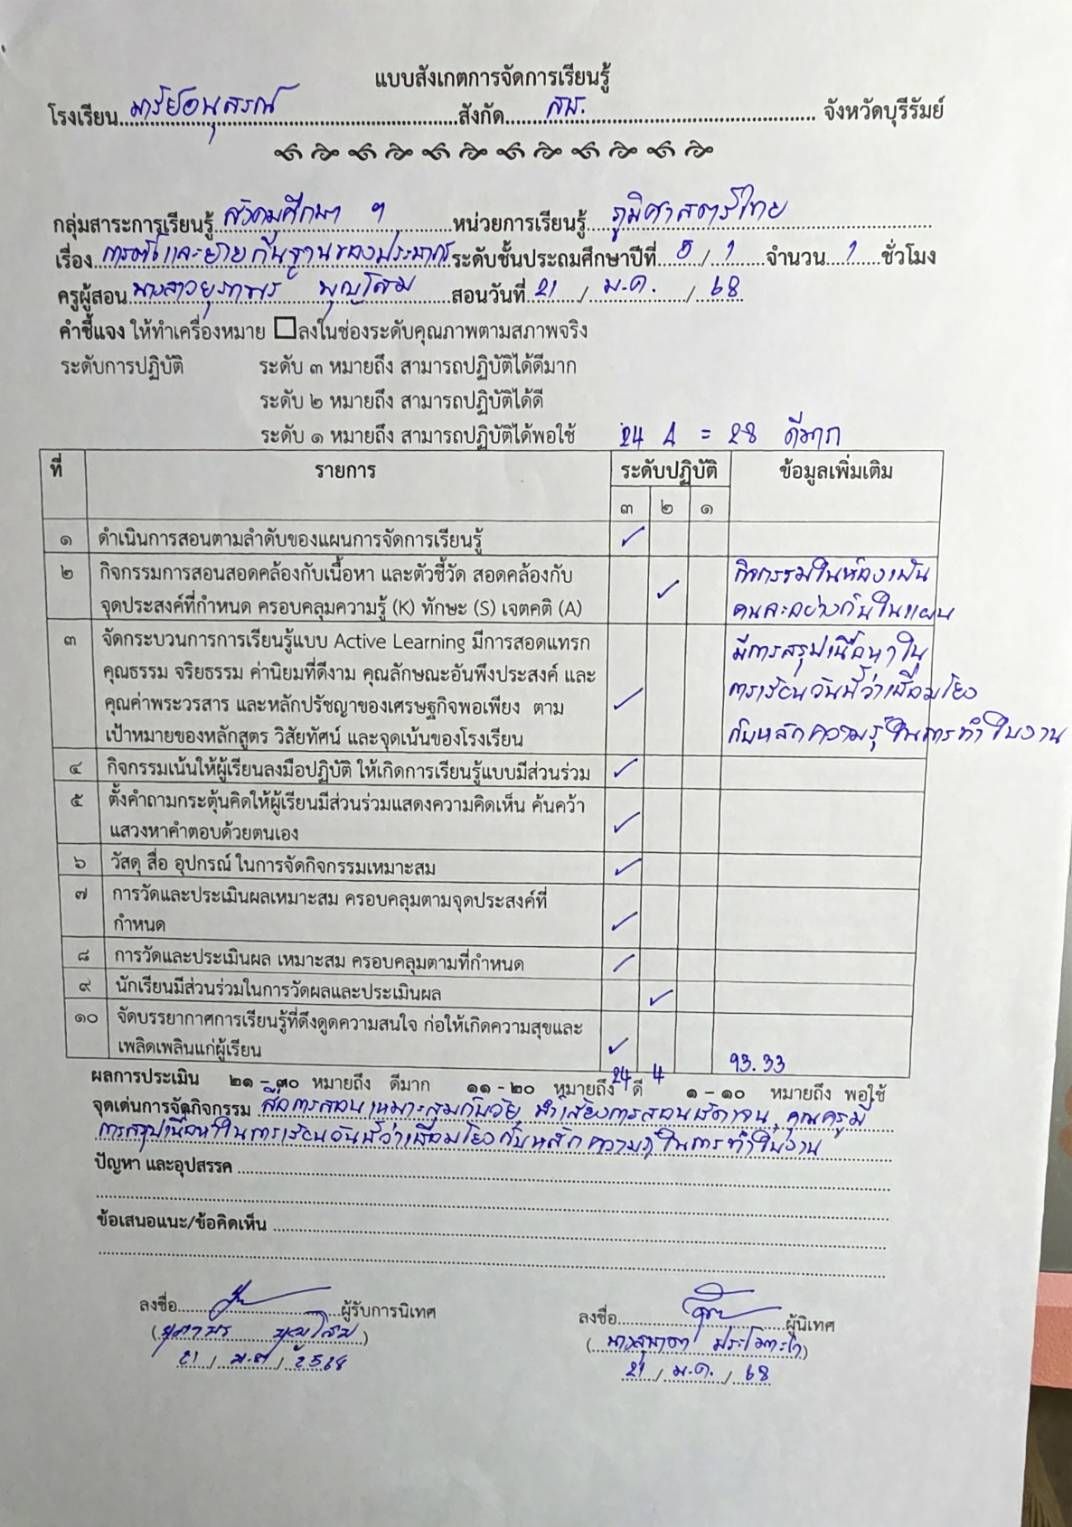 แบบสังเกตการจัดการเรียนรู้
โรงเรียน มารีย์อนุสรณ์ สังกัด สช. จังหวัดบุรีรัมย์
กลุ่มสาระการเรียนรู้ สังคมศึกษา ฯ หน่วยการเรียนรู้ ภูมิศาสตร์ไทย
เรื่อง การตั้งและย้ายถิ่นฐานของประชากร ระดับชั้นประถมศึกษาปีที่ 5 / 1 จำนวน 1 ชั่วโมง
ครูผู้สอน นางสาวยุภาพร บุญโสม สอนวันที่ 21 / ม.ค. / 68
คำชี้แจง ให้ทำเครื่องหมาย ☐ลงในช่องระดับคุณภาพตามสภาพจริง
ระดับการปฏิบัติ ระดับ ๓ หมายถึง สามารถปฏิบัติได้ดีมาก
ระดับ ๒ หมายถึง สามารถปฏิบัติได้ดี
ระดับ ๑ หมายถึง สามารถปฏิบัติได้พอใช้ 24 4 = 28 ดีมาก
ที่ รายการ ระดับปฏิบัติ ข้อมูลเพิ่มเติม
๓ ๒ ๑
๑ ดำเนินการสอนตามลำดับของแผนการจัดการเรียนรู้ ✓
๒ กิจกรรมการสอนสอดคล้องกับเนื้อหา และตัวชี้วัด สอดคล้องกับ ✓ กิจกรรมในห้องเป็น
จุดประสงค์ที่กำหนด ครอบคลุมความรู้ (K) ทักษะ (S) เจตคติ (A) คนละอย่างกับในแผน
๓ จัดกระบวนการการเรียนรู้แบบ Active Learning มีการสอดแทรก มีการสรุปเนื้อหาใน
คุณธรรม จริยธรรม ค่านิยมที่ดีงาม คุณลักษณะอันพึงประสงค์ และ การเรียนวันนี้ว่าเชื่อมโยง
คุณค่าพระวรสาร และหลักปรัชญาของเศรษฐกิจพอเพียง ตาม ✓ กับหลักความรู้ในการทำใบงาน
เป้าหมายของหลักสูตร วิสัยทัศน์ และจุดเน้นของโรงเรียน
๔ กิจกรรมเน้นให้ผู้เรียนลงมือปฏิบัติ ให้เกิดการเรียนรู้แบบมีส่วนร่วม ✓
๕ ตั้งคำถามกระตุ้นคิดให้ผู้เรียนมีส่วนร่วมแสดงความคิดเห็น ค้นคว้า ✓
แสวงหาคำตอบด้วยตนเอง
๖ วัสดุ สื่อ อุปกรณ์ ในการจัดกิจกรรมเหมาะสม ✓
๗ การวัดและประเมินผลเหมาะสม ครอบคลุมตามจุดประสงค์ที่ ✓
กำหนด
๘ การวัดและประเมินผล เหมาะสม ครอบคลุมตามที่กำหนด ✓
๙ นักเรียนมีส่วนร่วมในการวัดผลและประเมินผล ✓
๑๐ จัดบรรยากาศการเรียนรู้ที่ดึงดูดความสนใจ ก่อให้เกิดความสุขและ ✓
เพลิดเพลินแก่ผู้เรียน 93.33
24 4
ผลการประเมิน ๒๑ – ๓๐ หมายถึง ดีมาก ๑๑ - ๒๐ หมายถึง ดี ๑ – ๑๐ หมายถึง พอใช้
จุดเด่นการจัดกิจกรรม สื่อการสอนเหมาะสมกับวัย, น้ำเสียงการสอนชัดเจน, คุณครูมี
การสรุปเนื้อหาในการเรียนวันนี้ว่าเชื่อมโยงกับหลักความรู้ในการทำใบงาน
ปัญหา และอุปสรรค
ข้อเสนอแนะ/ข้อคิดเห็น
ลงชื่อ ผู้รับการนิเทศ ลงชื่อ ผู้นิเทศ
(ยุภาพร บุญโสม)
21 / ม.ค. / 2568 21 / ม.ค. / 68